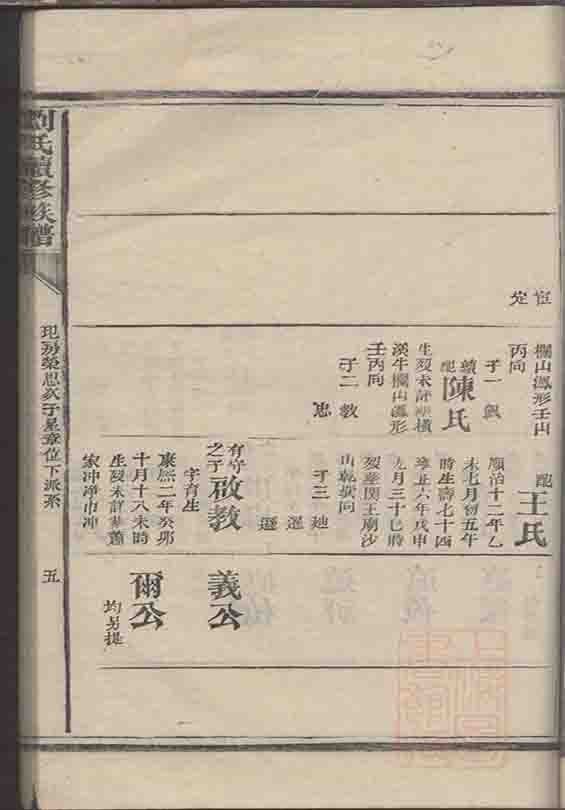 宦
定
欄山鳳形壬山
丙向
子一
續配陳氏
生歿未詳葬橫
漢牛欄山鳳形
壬丙向
子二 教
忠
配王氏
順治十二年乙
未七月初五午
時生壽七十四
雍正六年戊申
九月三十巳時
歿葬関王廟沙
山乾向
子三
選
有守之子啟教
字育生
康熙二年癸卯
十月十八未時
生歿未詳葬蕭
家沖
義公
爾公
均另提
劉氏續修族譜
房榮思公子星章位下派系
五